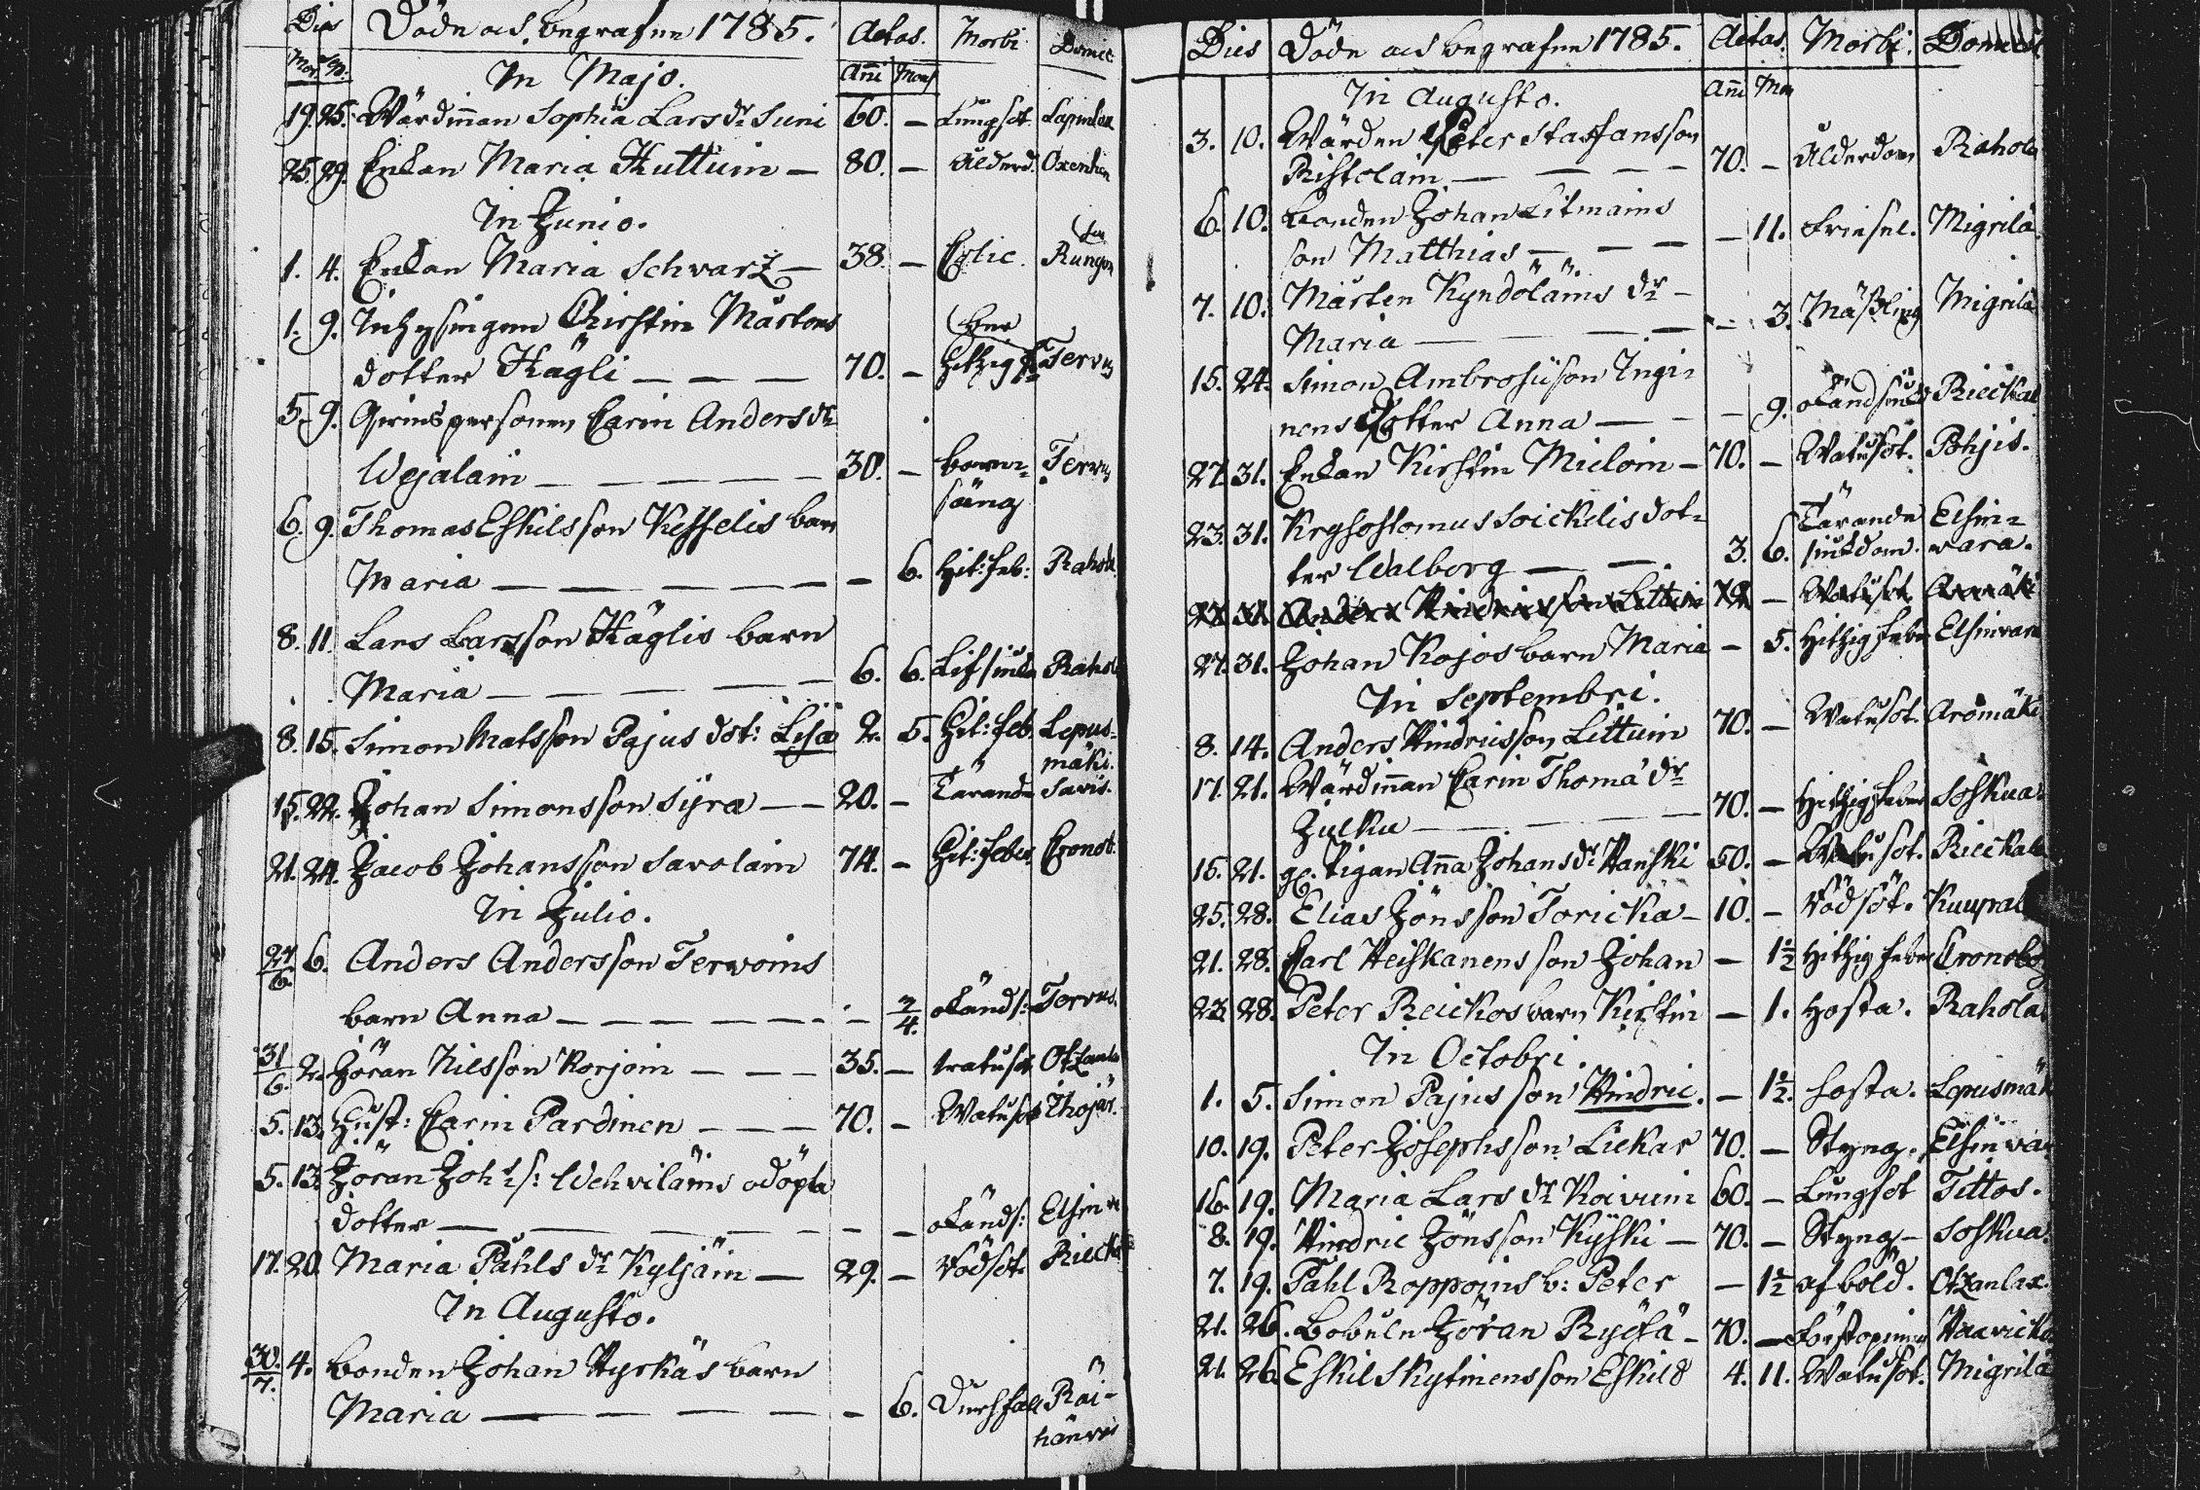 Dies Döde och begrafne 1785. Aetas. Morbi Domic
Mor. Ann̄i Mens
In Majo.
19. 25. Wärdin̄an Sophia Lars dr Suni 60. — Lungsot Lapinlax
25. 29. Enkan Maria Kuttuin — 80. — Ålderd. Oxenhin
In Junio.
1. 4. Enkan Maria Schvartz — 38. — Colic. Rungon
1. 9. Inhysingen Christin Mårtens
dotter Kägli — — — 70. — Hitzig feber Tervus
5. 9. Carin Anders dr
Wejalain — — — — — 30. — barn- Tervus
säng
6. 9. Thomas Eskilsson Kesselis barn
Maria — — — — — — — 6. Hit: feb: Rahola
8. 11. Lars Larsson Käglis barn
Maria — — — — — 6. 6. Rahola
8. 15. Simon Matsson Pajus dot: Lisa 2. 5. Hit: feb. Lepus-
mäki.
15. 22. Johan Simonsson Syra — — 20. — Tärande Savis.
21. 24. Jacob Johansson Savolain 74. — Hit: feber Cronob.
In Julio.
27/6. 6. Anders Andersson Terwoins
barn Anna — — — — — — — 2/4. okänds: Tervus.
31/6. 2. Jöran Nilsson Korjoin — — — 35. — Watusot Otzanlax
5. 13. Hust: Carin Pardinen — — — 70. — Watusot Ihojär.
5. 13. Jöran Joh: s: Wehviläins odöpta
dotter — — — — — — — okänds: Elsinva
17. 20. Maria Påhls dr Kyljäin — 29. — Rödsot. Rieckal
In Augusto.
30/7. 4. bonden Johan Hyrkäs barn
Maria — — — — — — 6. Durchfall Rai-
hänvei
Dies Döde och begrafne 1785. Aetas. Morbi. Domicil
Ann̄i Men
In Augusto.
3. 10. Wärden Peter Staffansson
Ristolain — — — — 70. — Ålderdom Rahola
6. 10. bonden Johan Litmains
son Matthias — — — — 11. Frisel. Migrilä.
7. 10. Mårten Kyndöläins dr —
Maria — — — — — 3. Mässling Migrilä
15. 24. Simon Ambrosiison Ingi-
nens dotter Anna — — — 9. okänd siukd Rieckal
27. 31. Enkan Kirstin Mieloin — 70. — Watusot. Pohjis.
23. 31. Krysostomus Soickelis dot- Tärande Elsin-
ter Walborg — — — 3. 6. siukdom. vara.
27. 31. Anders Hindricsson Littuin 70 — Watusot Aromäki
27. 31. Johan Kojos barn Maria — 5. Hitzig feber Elsinvara
In Septembri.
8. 14. Anders Hindricsson Littuin 70. — Watusot. Aromäki
17. 21. Wärdin̄an Carin Thomæ dr
Julku — — — — — 70. — Hitzig feber Soskua.
15. 21. gl. Pigan An̄a Johans dr Hanski 50. — Watusot. Rieckala
25. 28. Elias Jönsson Toricka — 10. — Rödsot. Kuupal
21. 28. Carl Heiskanens son Johan — 1½ Hitzig feber Cronobo
23. 28. Peter Reickos barn Kirstin — 1. Hosta. Rahola.
In Octobri.
1. 5. Simon Pajus son Hindric. — 1½. hosta. Lepusmäk
10. 19. Peter Josephsson Liekar 70. — Styng. Elsinva
16. 19. Maria Lars dr Koivuin 60. — Lungsot Tettos.
8. 19. Hindric Jönsson Kyiski — 70. — Styng — Soskua.
7. 19. Påhl Roppoins b: Peter — 1½ af böld. Otzanlax.
21. 26. Jöran Ryöfä — 70. — Förstopning Haavicko
21. 26. Eskil Skytinens son Eskild 4. 11. Watusot. Migrilä